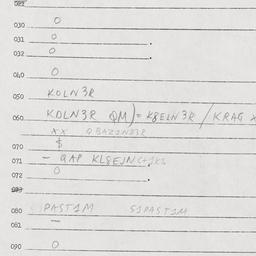 022
030 0
031 0 .
032 0 .
040 0
050 KOLN3R
060 KOLN3R QM) = K8ELN3R / KRAG
XX
070 $
071 - QAP .
072 0 .
073
080 PAST1M S1PAST1M
081 —
090 0